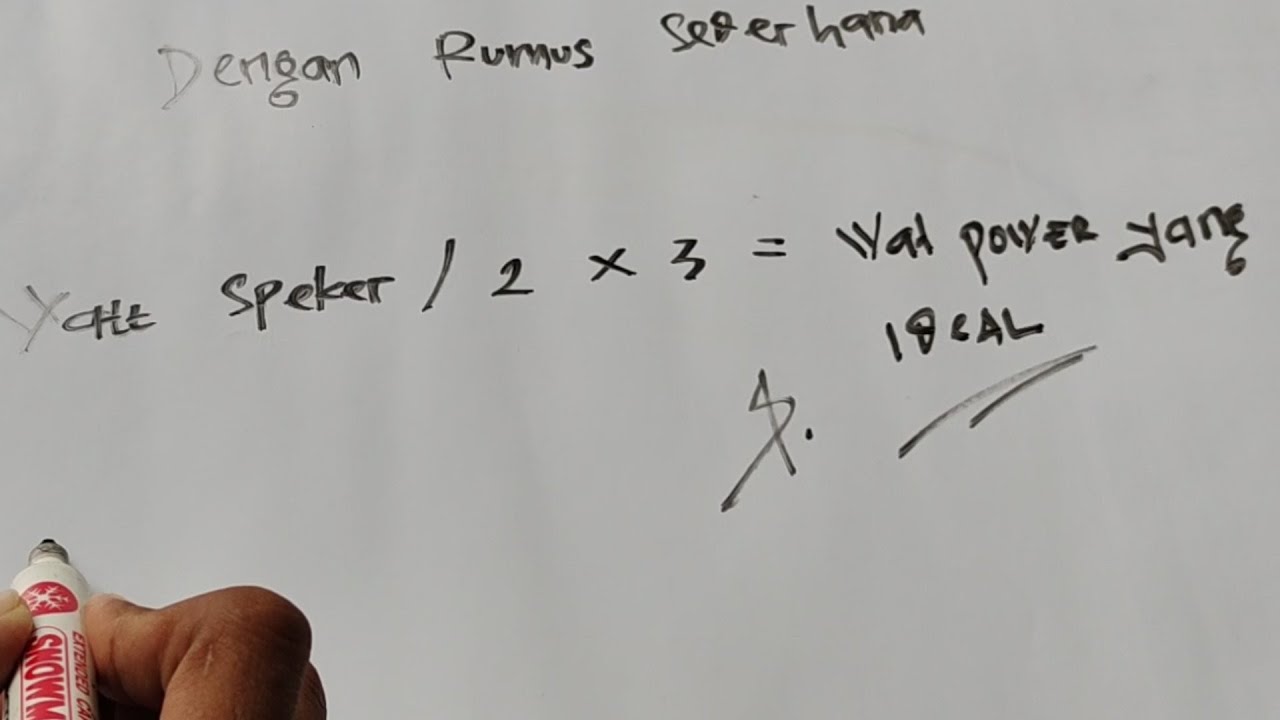 Dengan Rumus Sederhana
Watt Speker / 2 x 3 = Wat power yang
IdEAL
EXTENDED CA
SNOWM